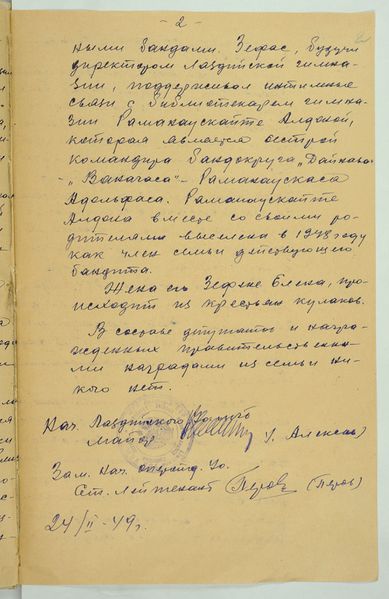 - 2 -
ными бандами. Зефас, будучи
директором Лаздийской гимна-
зии, поддерживал интимные
связи с библиотекарем гимна-
зии Раманаускайте Алдоной,
которая является сестрой
командира бандокруга „Дайнава"
- „Ванагаса" - Раманаускаса
Адольфаса. Раманаускайте
Алдона вместе со своими ро-
дителями выселена в 1948 году
как член семьи действующего
бандита.
Жена его Зефене Елена, про-
исходит из крестьян кулаков.
В составе депутатов и награ-
жденных правительственны-
ми наградами из семьи ни-
кого нет.
Нач. Лаздийского
майор
Зам. нач. опер
Ст. Лейтенант Перов (Перов)
24/II-49г.